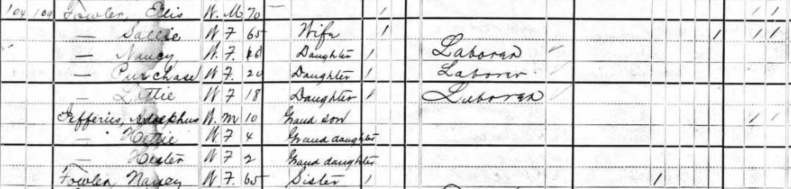 104 109 Fowler, Elis W. M 70 — 1 1 1
— Sallie W F 65 Wife 1 1 1 1
— Nancy W. F. Daughter 1 Laborer
— Purchase W F 20 Daughter 1 Laborer
— Lottie W F 18 Daughter 1 Laborer
Jefferies, Adolphus W. M 10 Grand son 1 1
— Hettie W F 4 Grand daughter
— Hester W F 2 Grand daughter
Fowler Nancy W F. 65 Sister 1 1